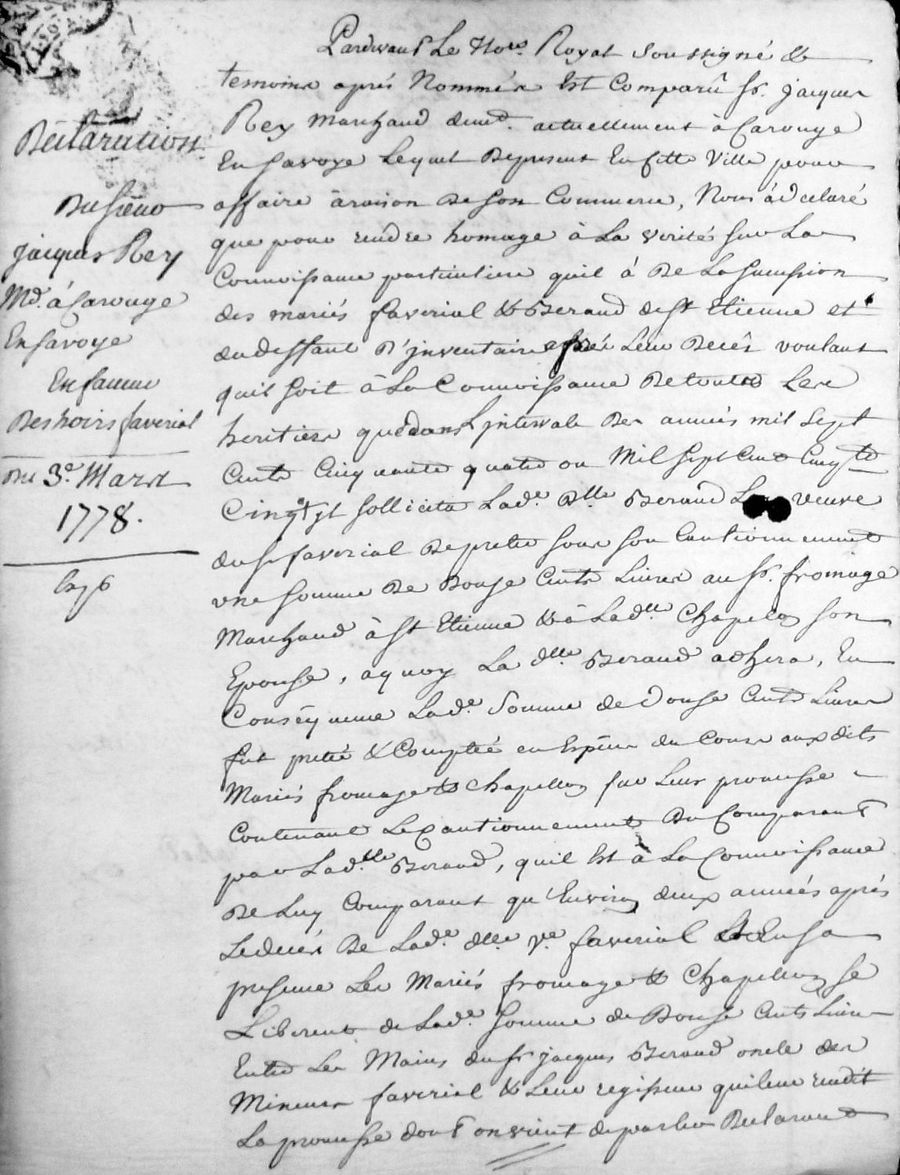 Déclaration
Du sieur
jacques Rey
Md. à Carouge
En savoye
En faveur
Des hoirs faverial
Du 3e. Mars
1778.
Pardevant Le Nore. Royal soussigné &
temoins aprés Nommés Est Comparû sr. jacques
Rey Marchand demt. actuellement à Carouge
En savoye Lequel De present En cette Ville pour
affaire à raison De son Commerce, Nous a declaré
que pour rendre homage à La verité sur La
Connoissance particuliere quil à De La succession
des mariés faverial & Beraud de st Etienne et
du deffaut D'inventaire aprés Leur Decés voulant
quil soit à La Connoissance De toutes Les
heritiers que dans L'intervale Des années mil sept
Cents Cinquante quatre ou Mil sept Cent Cinqte
Cinq Il sollicita Lade. Dlle Beraud veuve
du sr faverial De preter sous son Cautionnement
une somme De Douze Cents Livres au sr. fromage
Marchand à st Etienne & à Ladlle Chapelon son
Epouse, aquoy La dlle Beraud adhera, En
Conséquence Lade. Somme de Douze Cents Livres
fut pretée & Comptée en Espéces du Cours aux dits
Mariés fromage & Chapellon sur Leur promesse
Contenant Le Cautionnement Du Comparant
pour Ladlle Beraud, quil Est à La Connoissance
De Luy Comparant qu'Environ deux années aprés
Le decés De Lade. dlle ve. faverial & En sa
presence Les Mariés fromage & Chapellon se
Liberent de Lade. Somme de Douze Cents Livres
Entre Les Mains du sr jacques Beraud oncle des
Mineurs faverial & Leur regisseur quileur rendit
La promesse dont on vient de parler Declarant